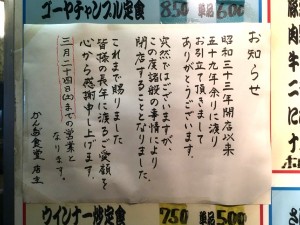 ゴーヤチャンプル定食 850 単品600
お知らせ
昭和三十三年開店以来
五十九年余りに渡り
お引立て頂きまして
ありがとうございます。
突然ではございますが、
この度諸般の事情により
閉店することとなりました。
これまで賜りました
皆様の長年に渡るご愛顧を
心から感謝申し上げます。
三月二十四日(土)までの営業と
なります。
かんだ食堂 店主
ウインナー炒定食 750 単品500
豚
肉
牛